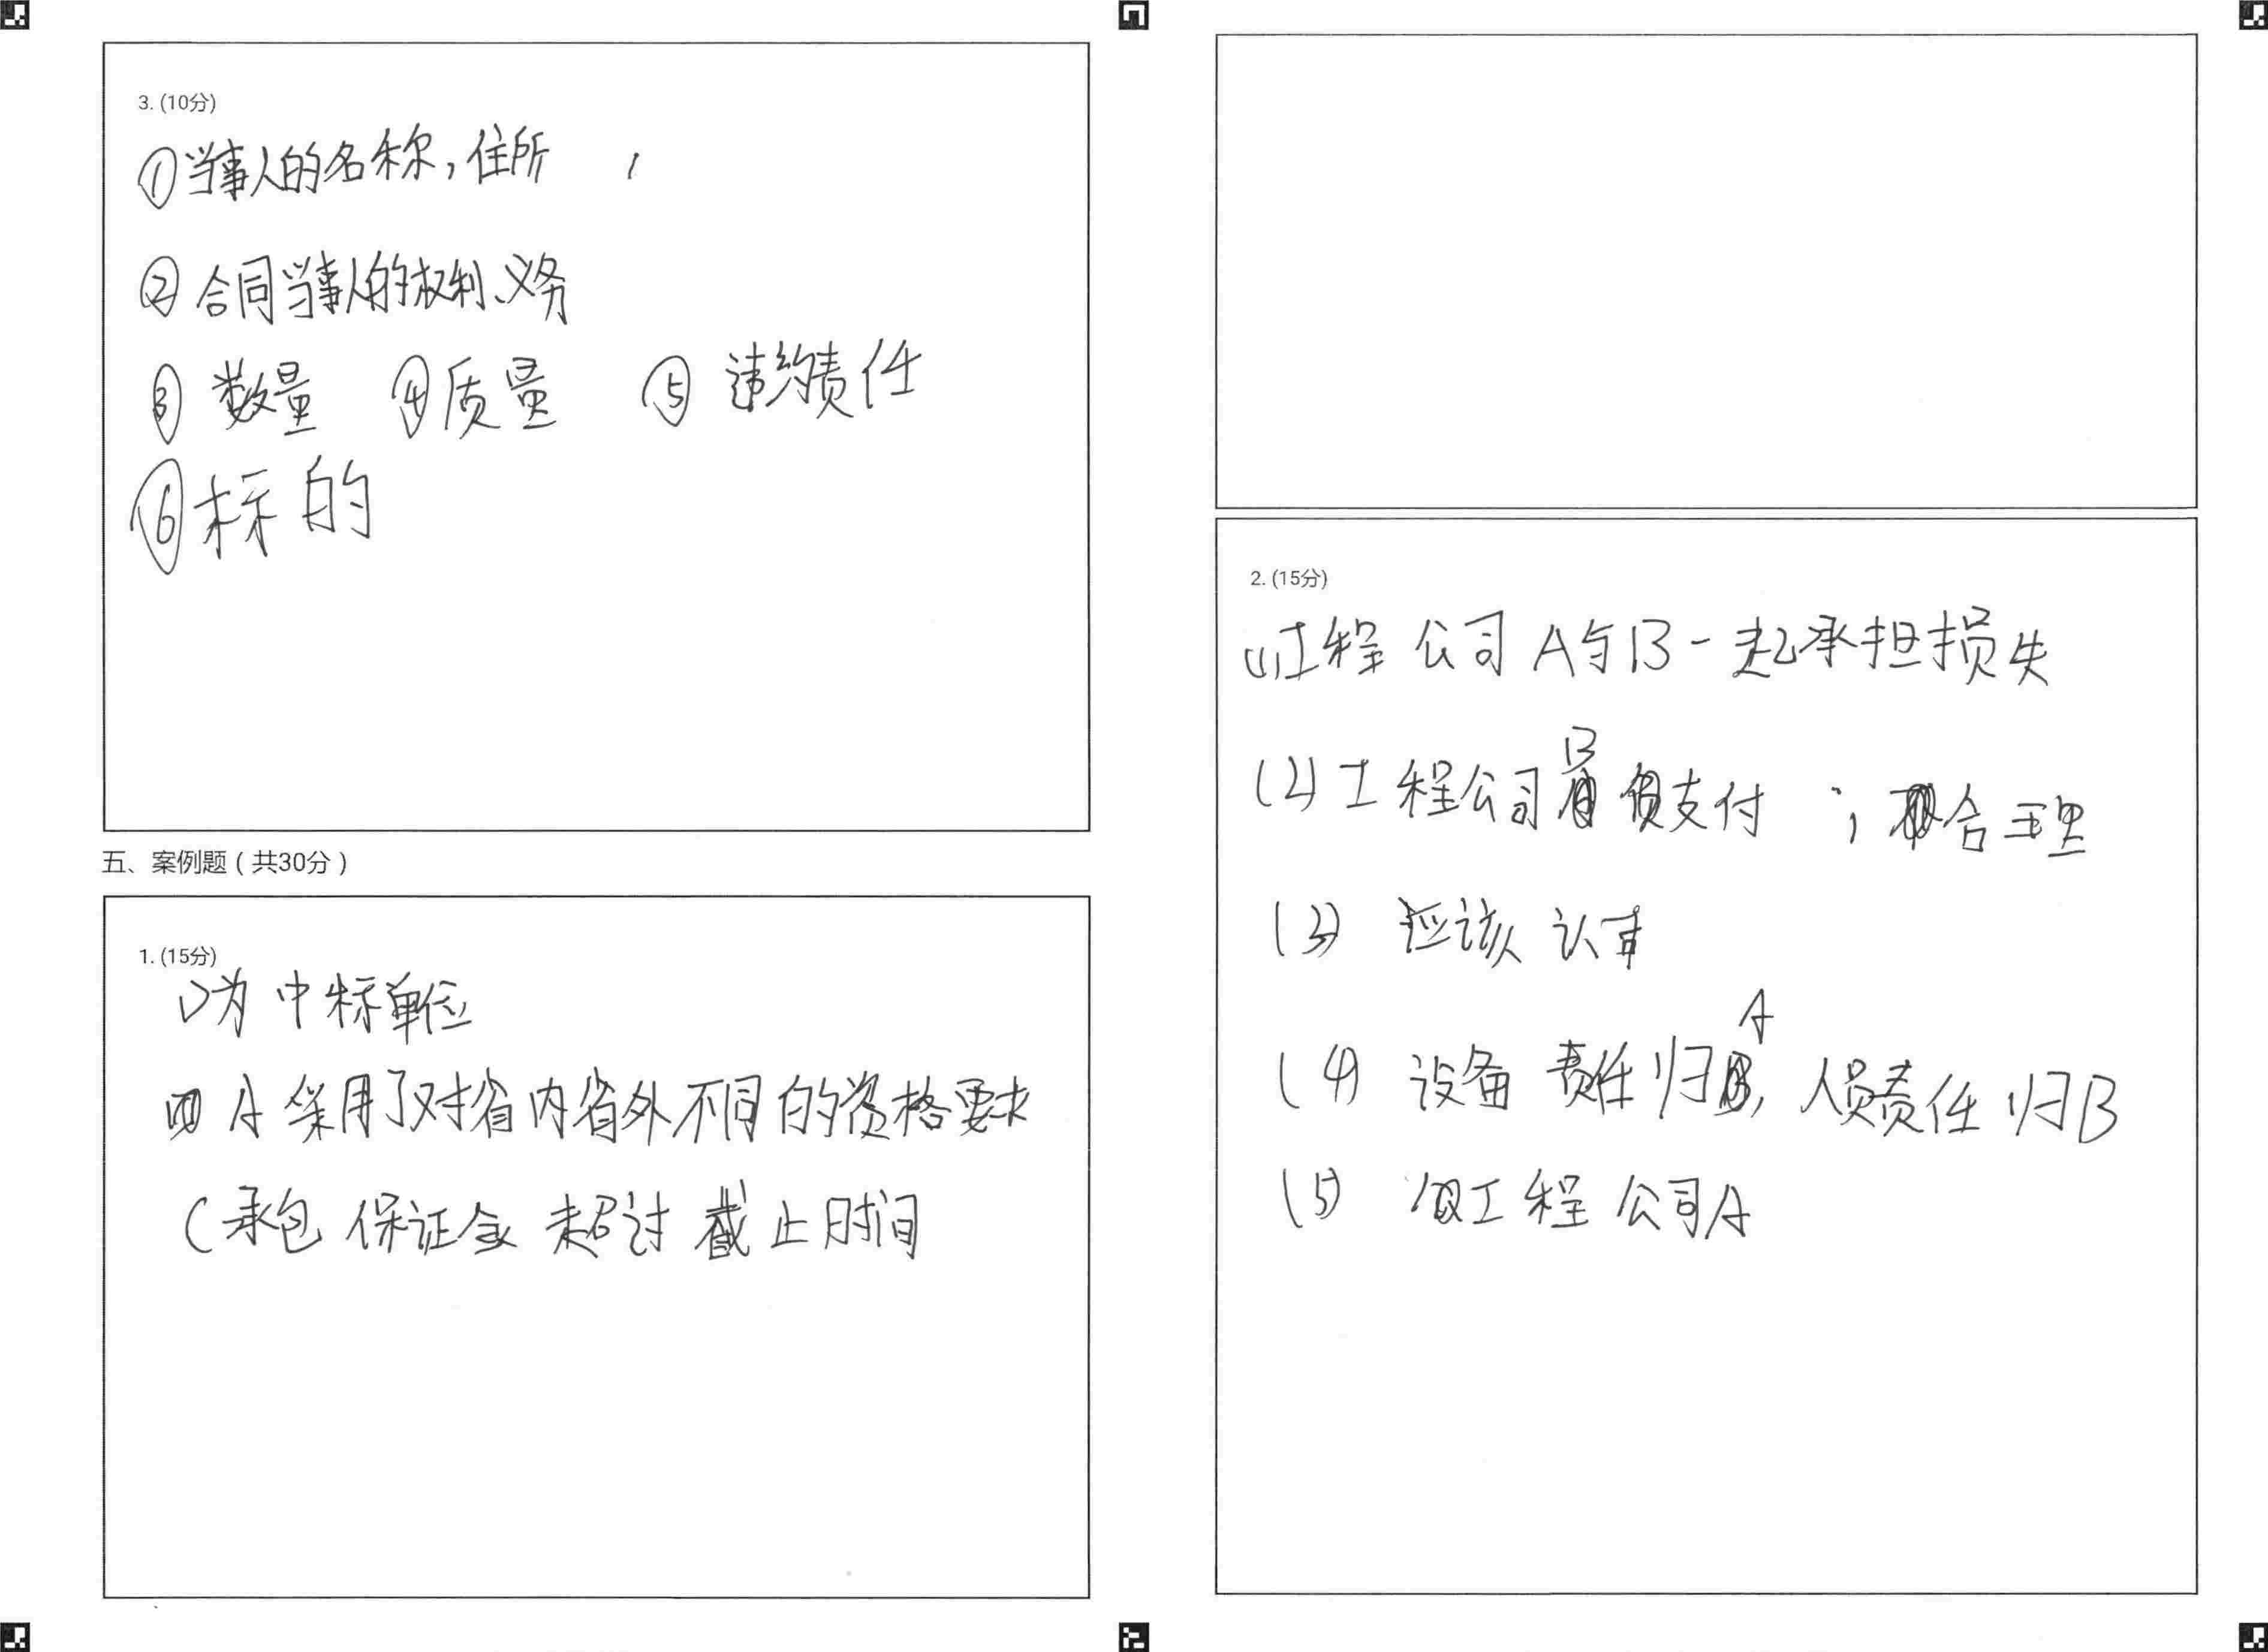 3. (10分)
①当事人的名称,住所
②合同当事人的权利、义务
③数量 ④质量 ⑤违约责任
⑥标的
五、案例题(共30分)
1. (15分)
D为中标单位
A 采用了对省内省外不同的资格要求
C承包保证金超过截止时间
2. (15分)
(1)工程公司A与B一起承担损失
(2)工程公司B支付;合理
(3)应该认可
(4)设备责任归A,人员责任归B
(5)工程公司A